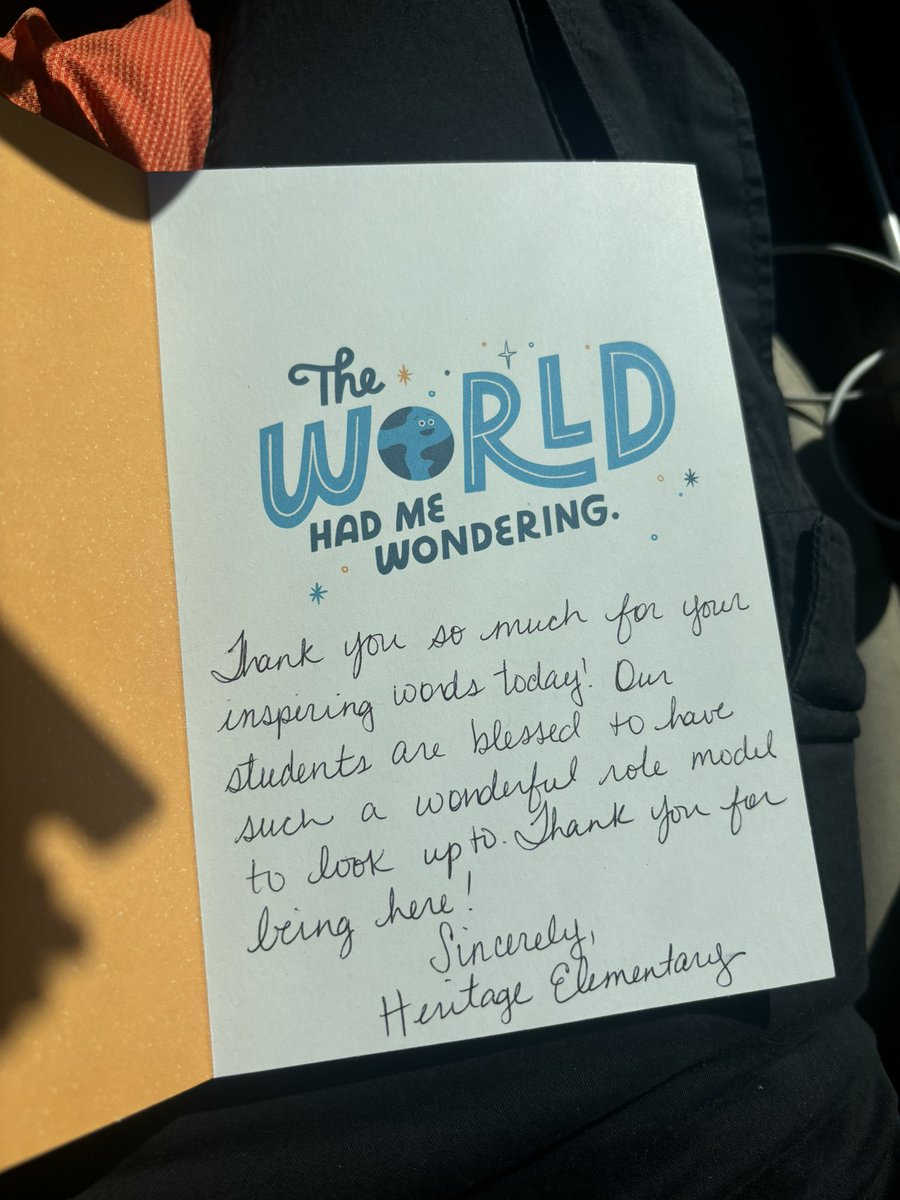 The
WORLD
HAD ME
WONDERING.
Thank you so much for your
inspiring words today! Our
students are blessed to have
such a wonderful role model
to look up to. Thank you for
being here!
Sincerely,
Heritage Elementary